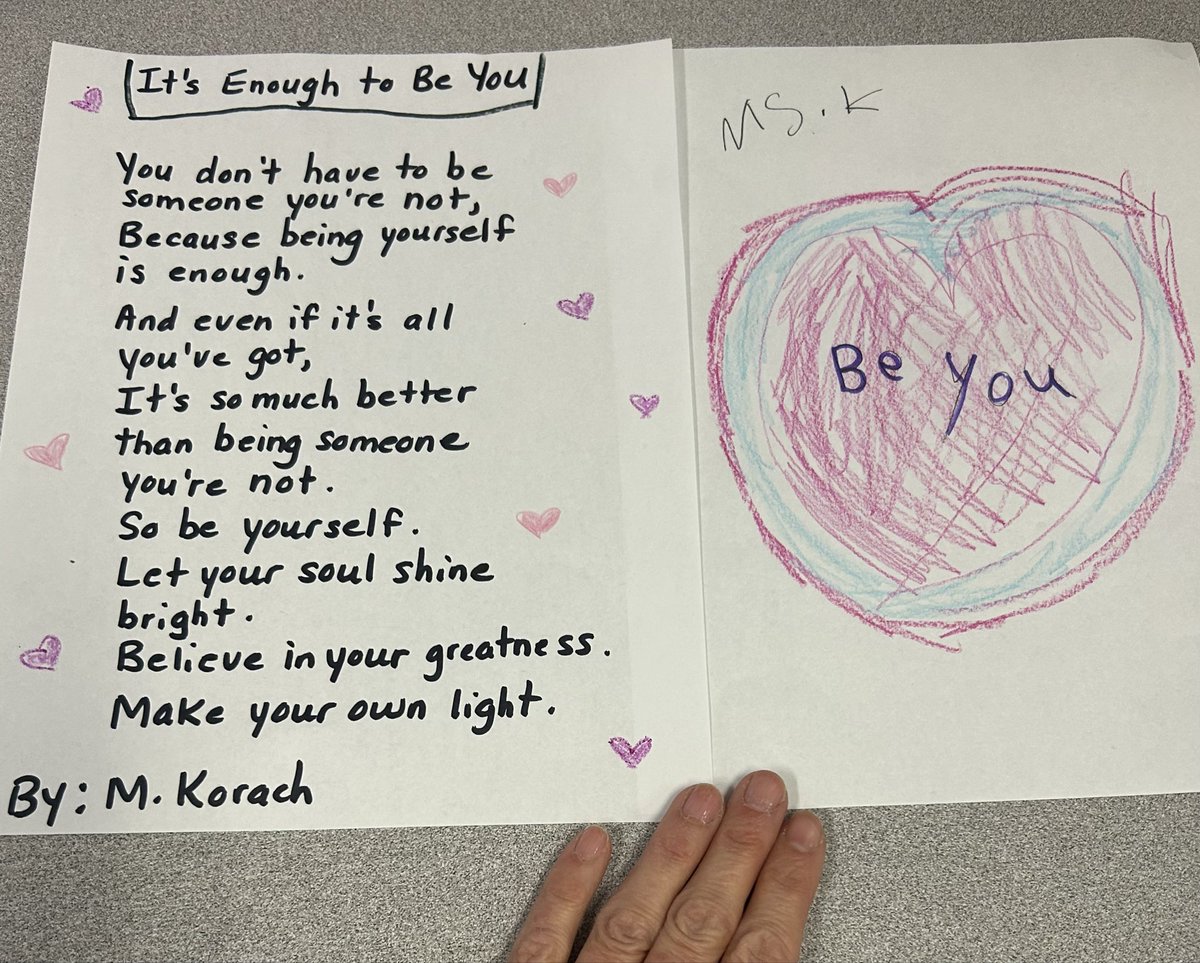 It's Enough to Be You
You don't have to be
someone you're not,
Because being yourself
is enough.
And even if it's all
you've got,
It's so much better
than being someone
you're not.
So be yourself.
Let your soul shine
bright.
Believe in your greatness.
Make your own light.
By: M. Korach
MS. K
Be You